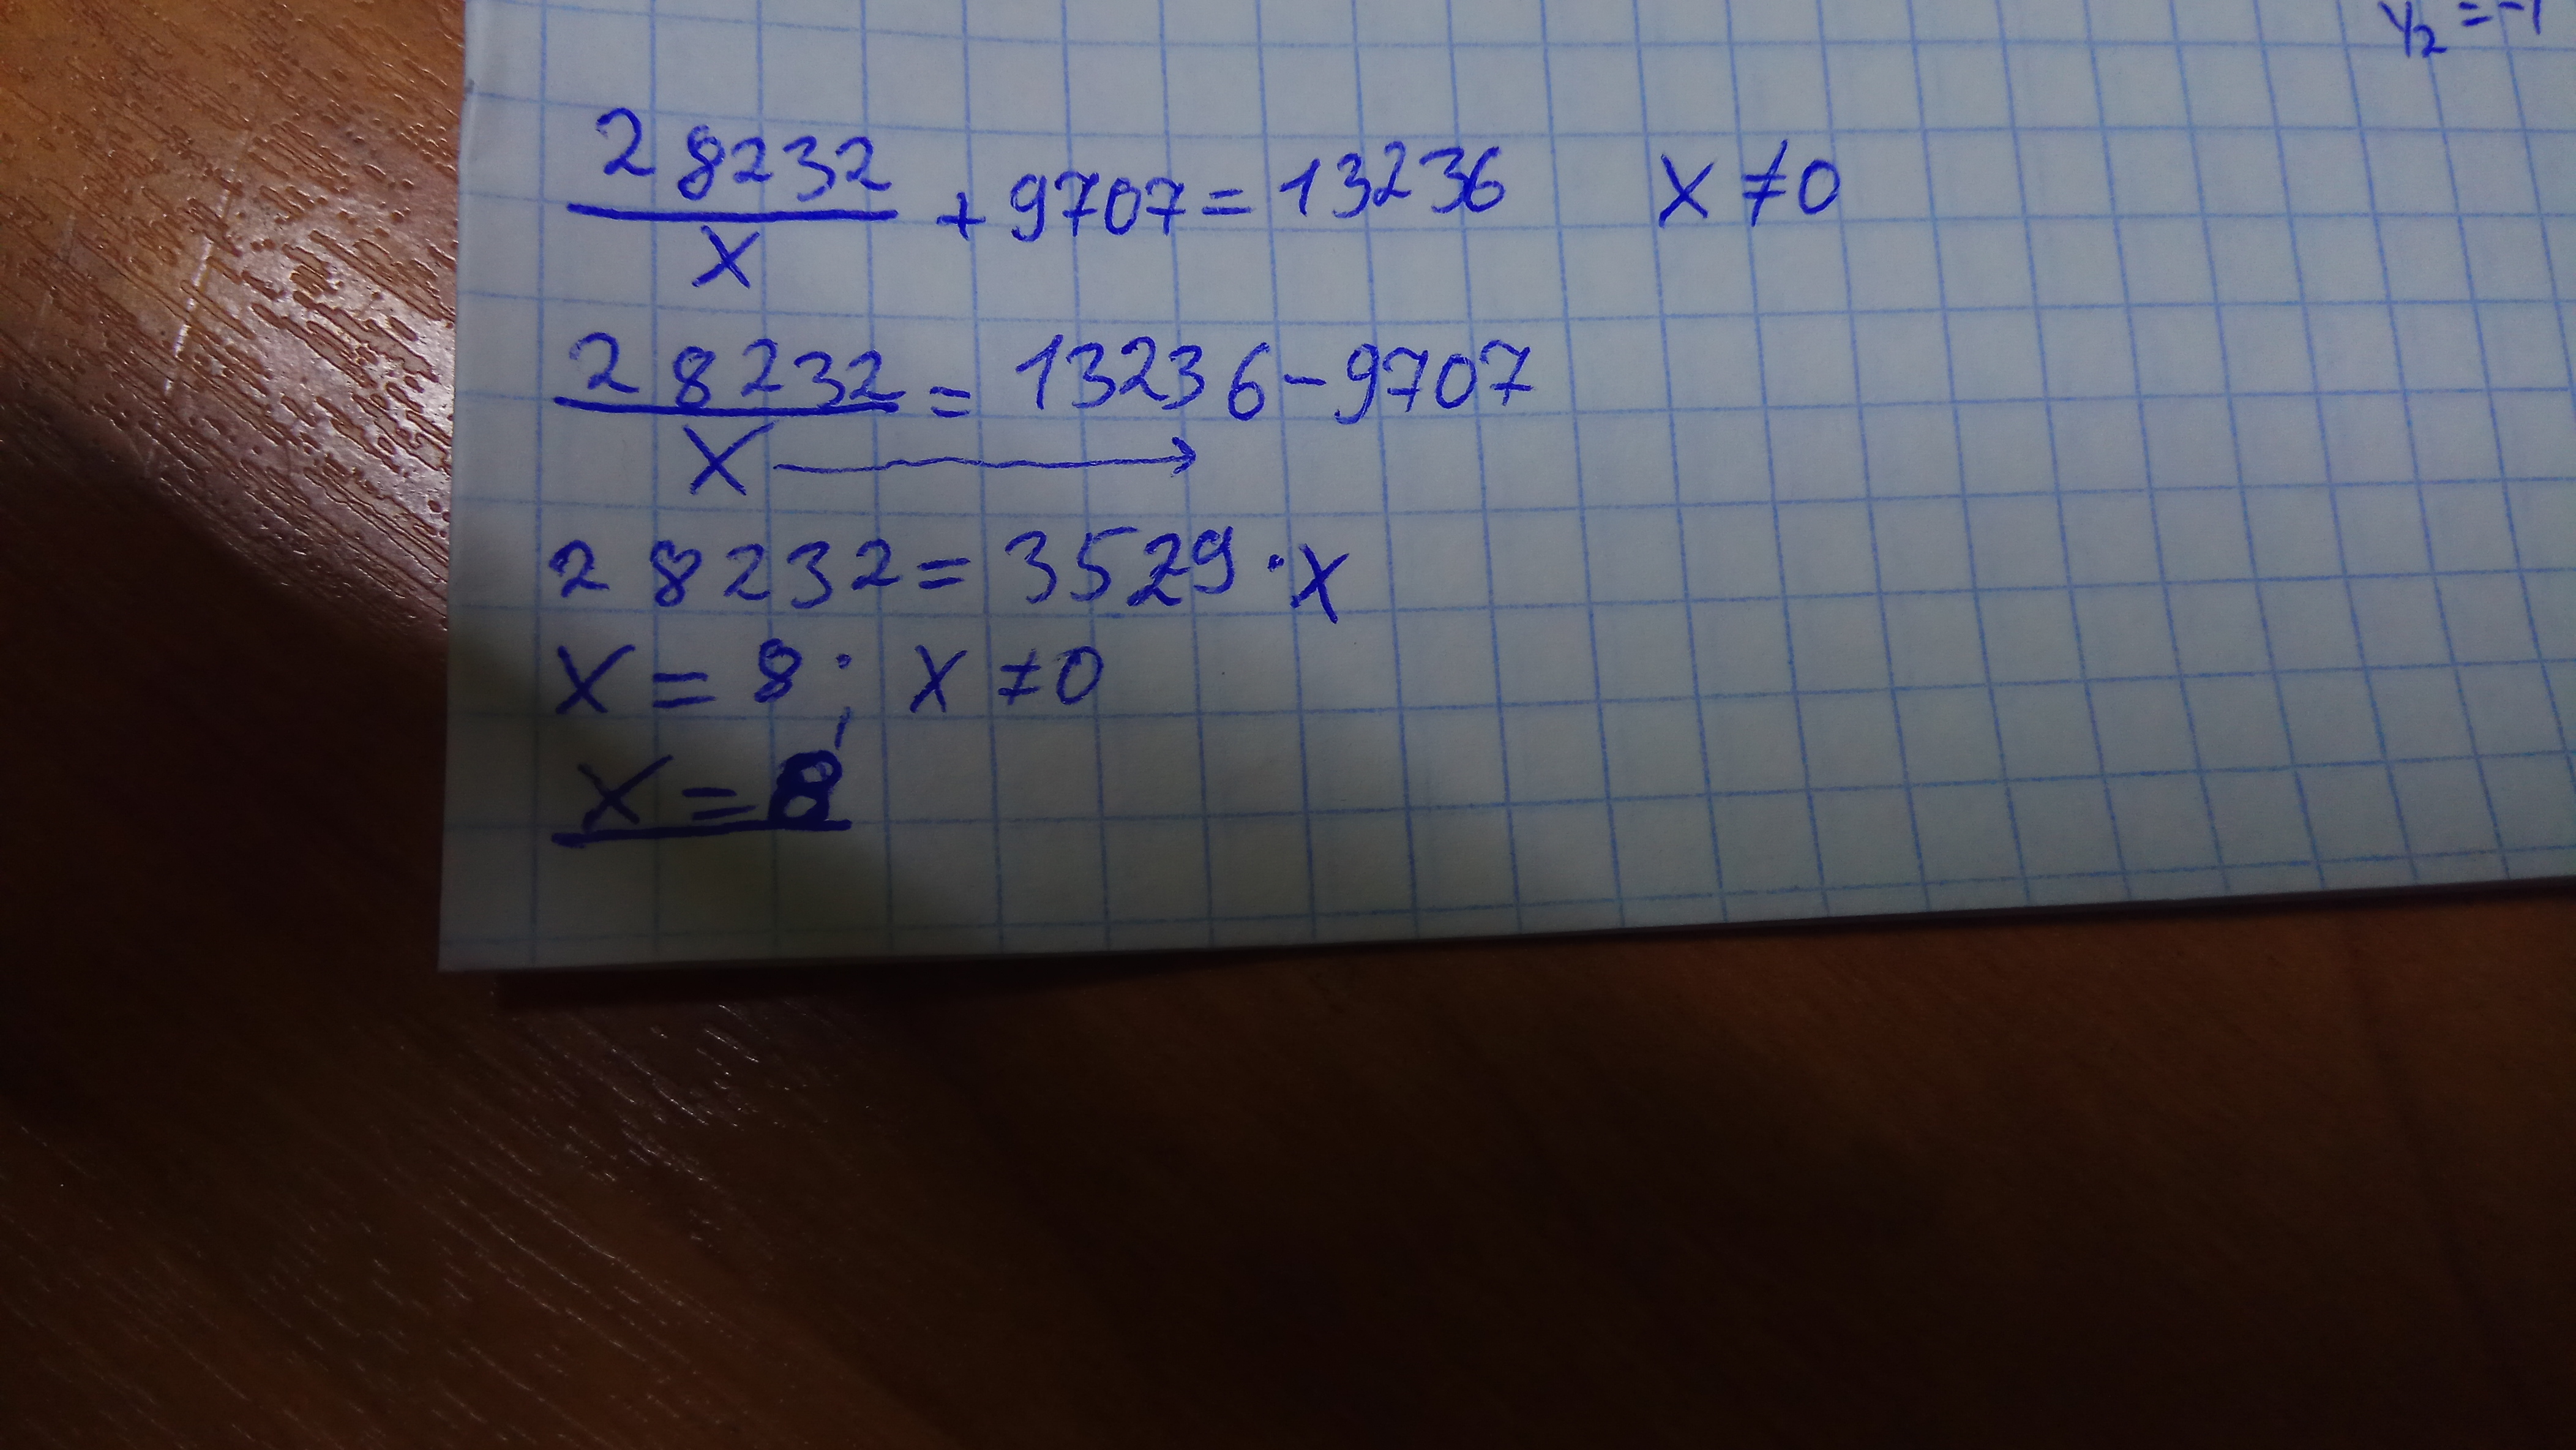 y₂ = -1
28232/x + 9707 = 13236 x ≠ 0
28232/x = 13236 - 9707
28232 = 3529 · x
x = 8; x ≠ 0
x = 8